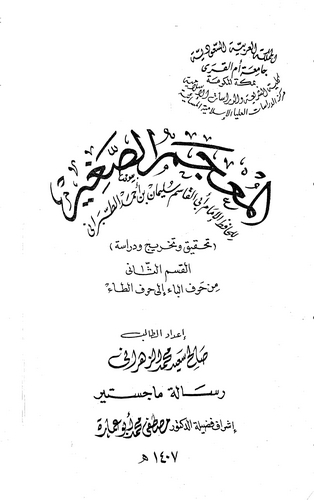 المملكة العربية السعودية
جامعة أم القرى
بمكة المكرمة
كلية الشريعة والدراسات الإسلامية
مركز الدراسات العليا الإسلامية المسائية
المعجم الصغير
للحافظ الإمام أبي القاسم سليمان بن أحمد الطبراني
(تحقيق وتخريج ودراسة)
القسم الثاني
من حرف الباء إلى حرف الطاء
إعداد الطالب
صالح سعيد محمد الزهراني
رسالة ماجستير
إشراف فضيلة الدكتور مصطفى محمد أبو عمارة
١٤٠٧ هـ